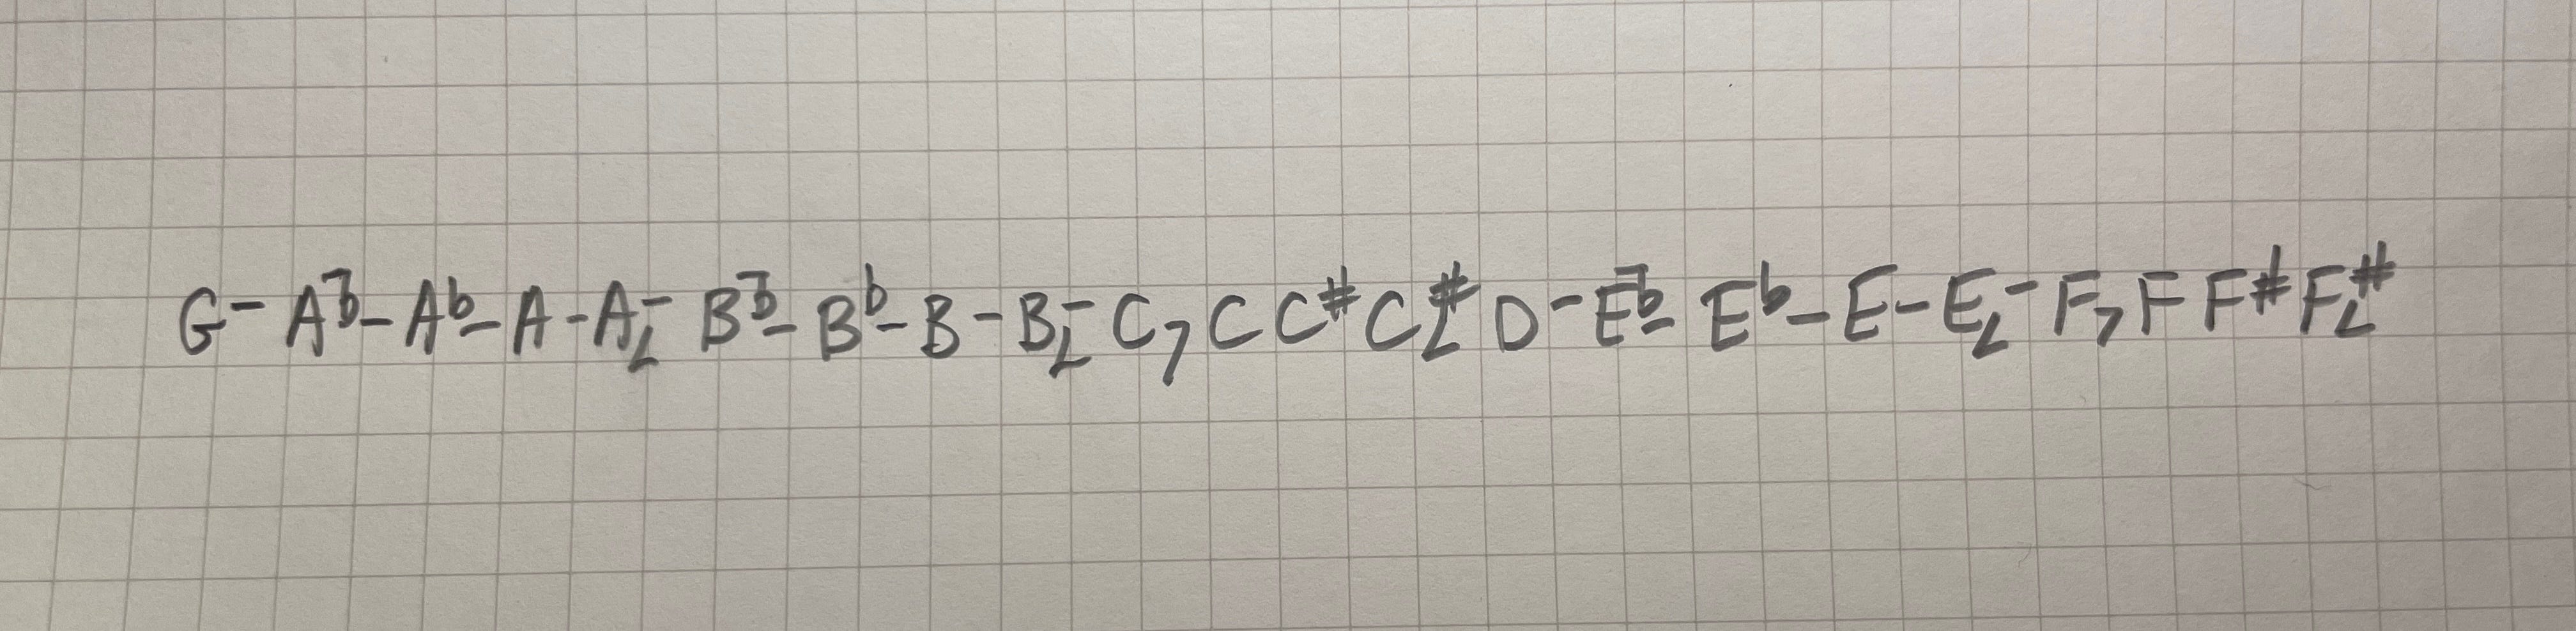 G- A7b- Ab- A- AL- B7b- Bb- B- BL- C7 C C# CL# D- E7b- Eb- E- EL- F7 F F# FL#